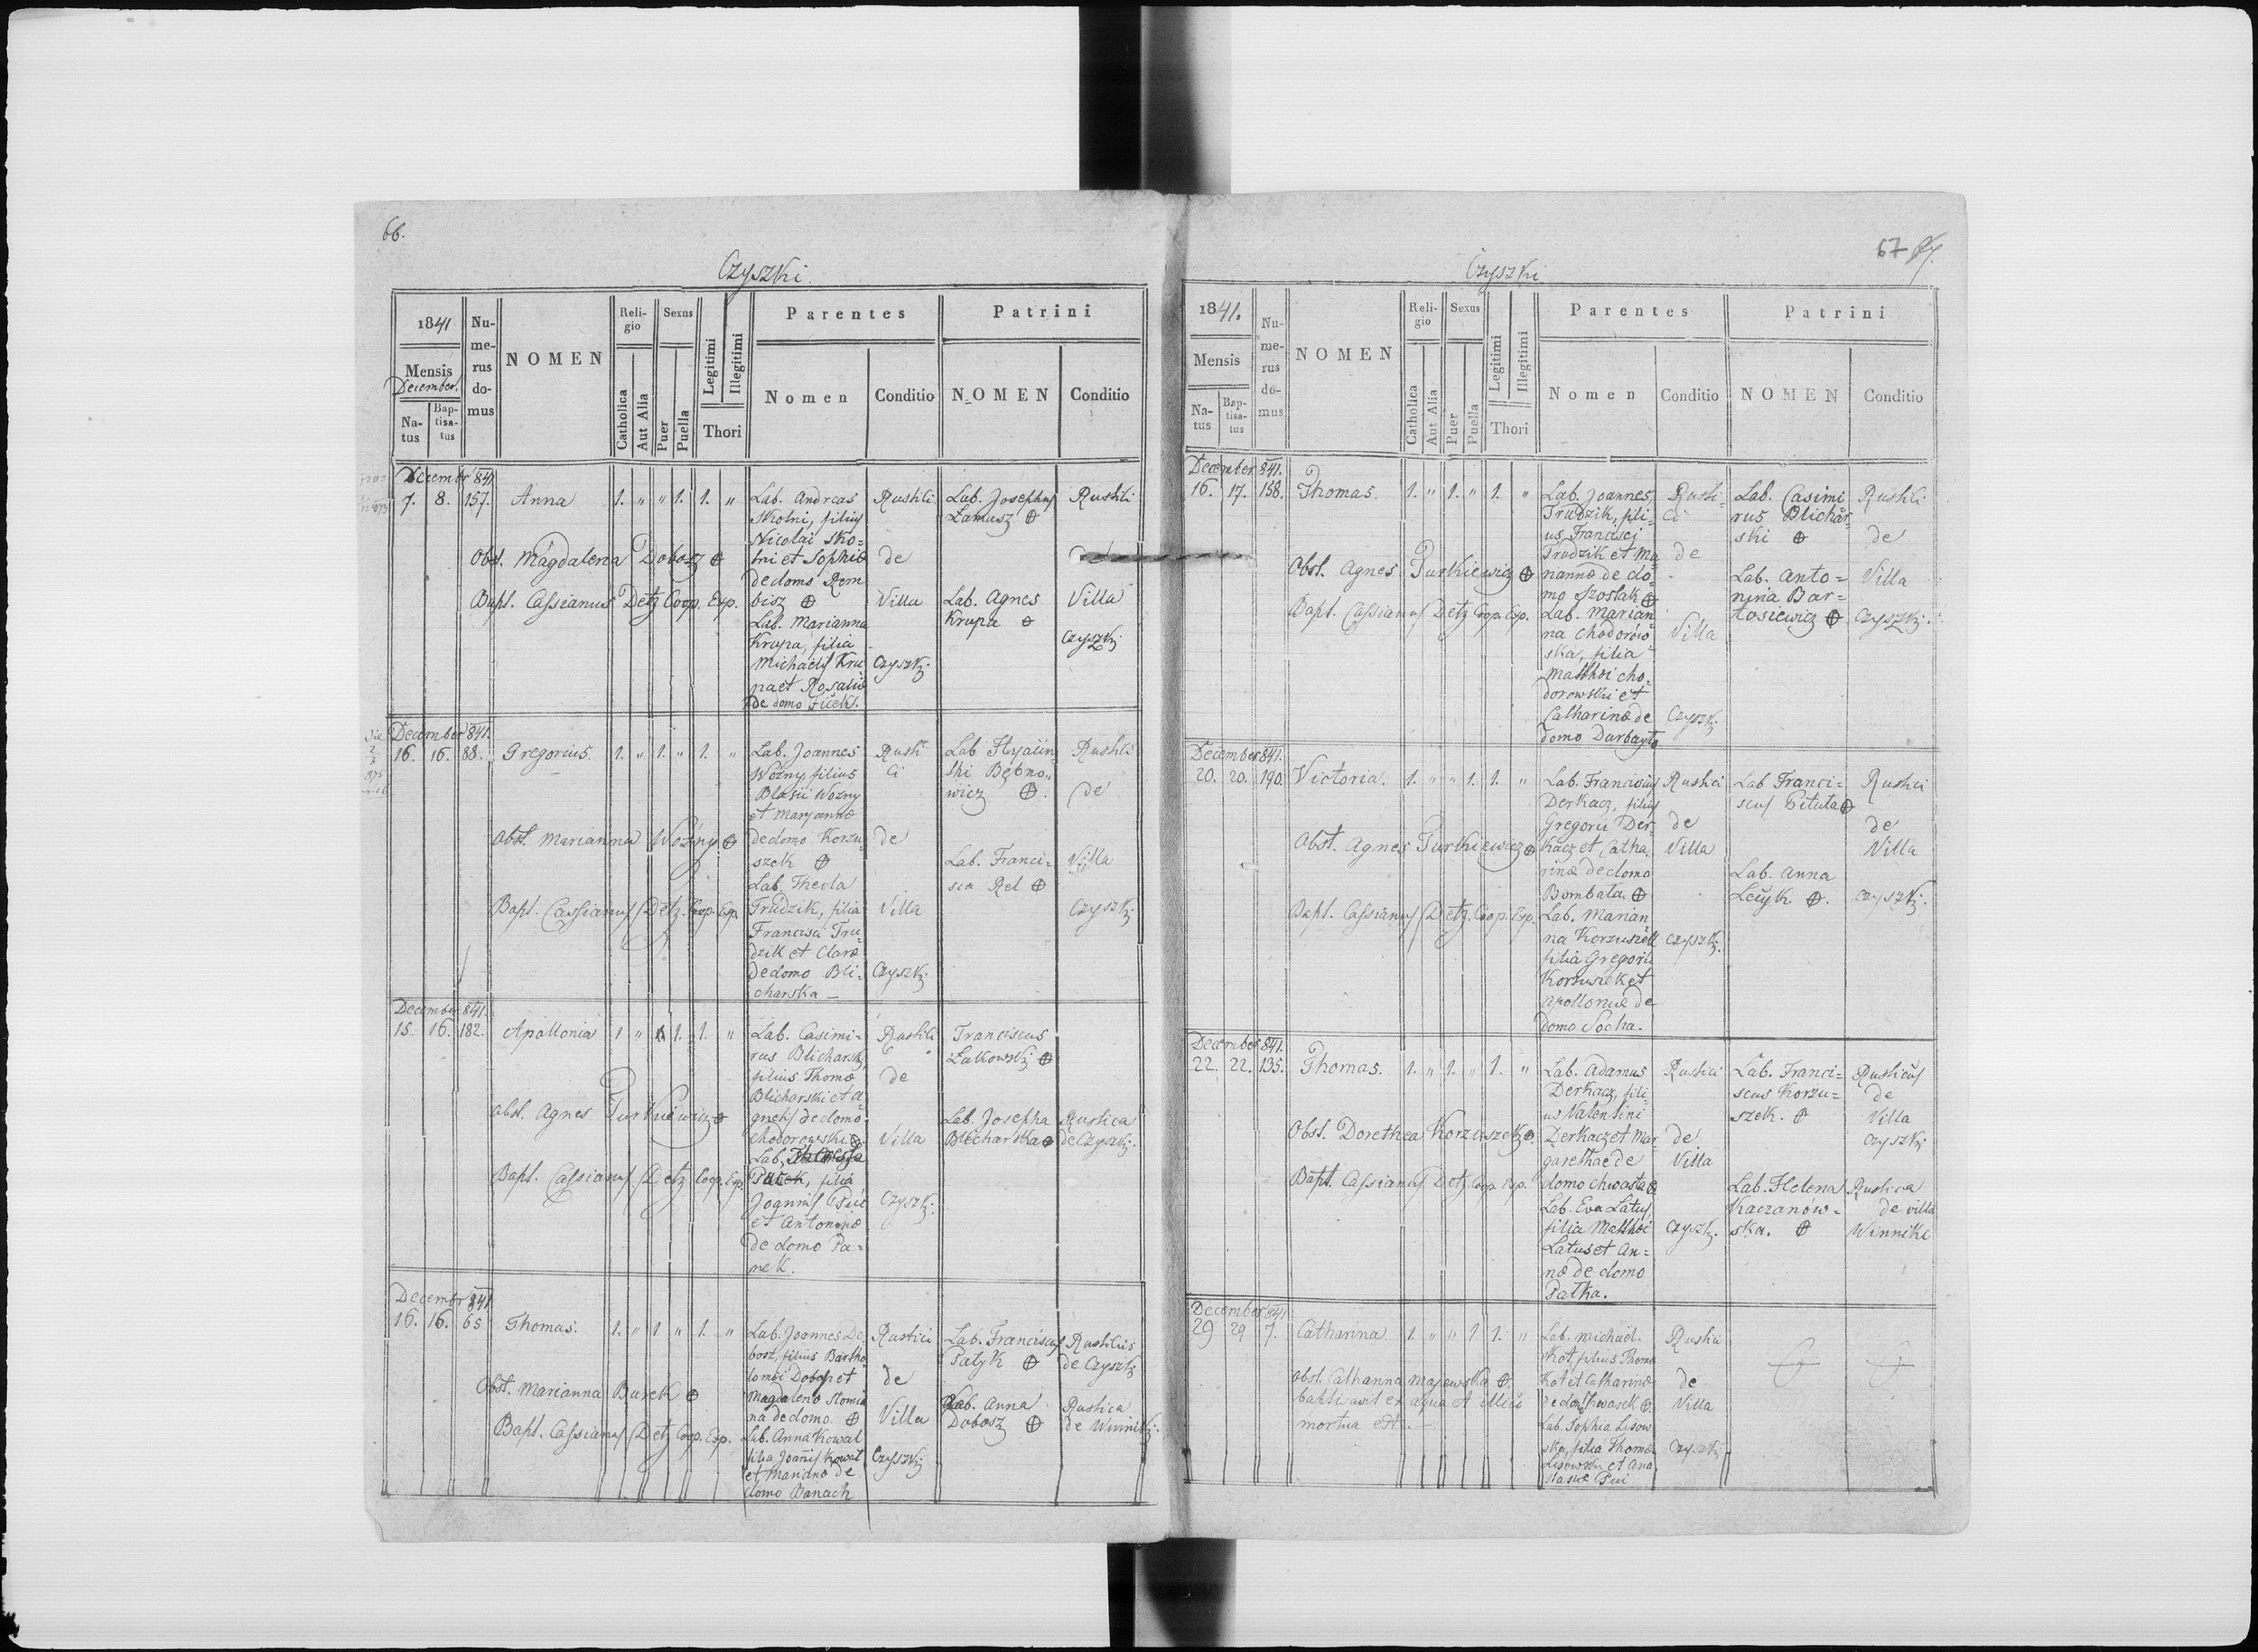 66.
Czyszki.
1841
Mensis
December.
Na-
tus
Bap-
tisa-
tus
Nu-
me-
rus
do-
mus
NOMEN
Reli-
gio
Catholica
Aut Alia
Sexus
Puer
Puella
Legitimi
Illegitimi
Thori
Parentes
Nomen
Conditio
Patrini
NOMEN
Conditio
December 841
7. 8. 157. Anna 1. " " 1. 1. "
Obst. Magdalena Dobosz ⊕
Bapt. Cassianus Detz Coop. Exp.
Lab. Andreas
Skolni, filius
Nicolai Sko=
lni et Sophiæ
de domo Rem
bisz ⊕
Lab. Marianna
Krupa, filia
Michaelis Kru
pa et Rosaliæ
de domo Ficek.
Rustici
de
Villa
Czyszki.
Lab. Josephus
Łamasz ⊕
Lab. Agnes
Krupa ⊕
Rustici
de
Villa
Czyszki
December 841.
16. 16. 88. Gregorius. 1. " 1. " 1. "
Obst. Marianna Woźny ⊕
Bapt. Cassianus Detz. Coop. Exp.
Lab. Joannes
Woźny filius
Blasii Woźny
et Maryannæ
de domo Korzu
szek ⊕
Lab. Thecla
Trudzik, filia
Francisci Tru
dzik et Claræ
de domo Bli=
charska —
Rusti
ci
de
Villa
Czyszki.
Lab. Hyacin
thi Bębno=
wicz ⊕.
Lab. Franci=
sca Rel ⊕
Rustici
de
Villa
Czyszki
December 841.
15. 16. 182. Apollonia 1 " 1. 1. "
Obst. Agnes Turkiewicz ⊕
Bapt. Cassianus Detz Coop. Exp.
Lab. Casimi=
rus Blicharski
filius Thomæ
Blicharski et A=
gnetis de domo
Chodorowski ⊕
Lab.
filia
Joannis
et Antoninæ
de domo Pa=
nek.
Rustici
de
Villa
Czyszki.
Franciscus
Łakowski ⊕
Lab. Josepha
Blicharska ⊕
Rustica
de Czyszki.
December 841
16. 16. 65 Thomas. 1. " 1 " 1. "
Obst. Marianna Burek ⊕
Bapt. Cassianus Detz Coop. Exp.
Lab. Joannes Do
bosz, filius Bartho
lomæi Dobosz et
Magdalena
na de domo ⊕
Lab. Anna Kowal
filia Joannis Kowal
et Marianna de
domo Banach
Rustici
de
Villa
Czyszki
Lab. Franciscus
Patyk ⊕
Lab. Anna
Dobosz ⊕
Rusticus
de Czyszki
Rustica
de Winniki.
67
Czyszki
1841.
Mensis
Na-
tus
Bap-
tisa-
tus
Nu-
me-
rus
do-
mus
NOMEN
Reli-
gio
Catholica
Aut Alia
Sexus
Puer
Puella
Legitimi
Illegitimi
Thori
Parentes
Nomen
Conditio
Patrini
NOMEN
Conditio
December 841.
16. 17. 158. Thomas. 1. " 1. " 1. "
Obst. Agnes Turkiewicz ⊕
Bapt. Cassianus Detz Coop. Exp.
Lab. Joannes
Trudzik, fili=
us Francisci
Trudzik et Ma
riannæ de do=
mo Szostak ⊕
Lab. Marian
na Chodorów
ska, filia
Matthæi Cho=
dorowski et
Catharinæ de
domo Darbayło
Rusti=
ci
de
Villa
Czyszk.
Lab. Casimi
rus Blichar=
ski ⊕
Lab. Anto=
nina Bar=
tosiewicz ⊕
Rustici
de
Villa
Czyszki.
December 841.
20. 20. 190. Victoria. 1. " " 1. 1. "
Obst. Agnes Turkiewicz ⊕
Bapt. Cassianus Detz Coop. Exp.
Lab. Franciscus
Derkacz, filius
Gregorii Der=
kacz et Catha
rinæ de domo
Bombata ⊕
Lab. Marian
na Korzuszek
filia Gregorii
Korzuszek et
Apolloniæ de
domo Socha.
Rustici
de
Villa
Czyszki.
Lab. Franci=
scus Pituła ⊕
Lab. Anna
Lecyk ⊕.
Rustici
de
Villa
Czyszki.
December 841.
22. 22. 135. Thomas. 1. " 1. " 1. "
Obst. Dorethea Korzuszek ⊕.
Bapt. Cassianus Detz Coop. Exp.
Lab. Adamus
Derkacz, fili=
us Valentini
Derkacz et Mar=
garethae de
domo Chwasta ⊕
Lab. Eva Latus,
filia Matthæi
Latus et An=
næ de domo
Patka.
Rustici
de
Villa
Czyszki.
Lab. Franci=
scus Korzu=
szek. ⊕
Lab. Helena
Kaczanow=
ska. ⊕
Rusticus
de
Villa
Czyszki
Rustica
de villa
Winniki
December 841
29 29 7. Catharina 1. " " 1 1. "
Obst. Catharina Majewska ⊕.
baptisavit ex aqua et illico
mortua est. —
Lab. Michael
Kot, filius Thomæ
Kot et Catharinæ
de domo
Lab. Sophia Lisow
ska, filia Thomæ
Lisowski et Ana
stasiæ
Rustici
de
Villa
Czyszki